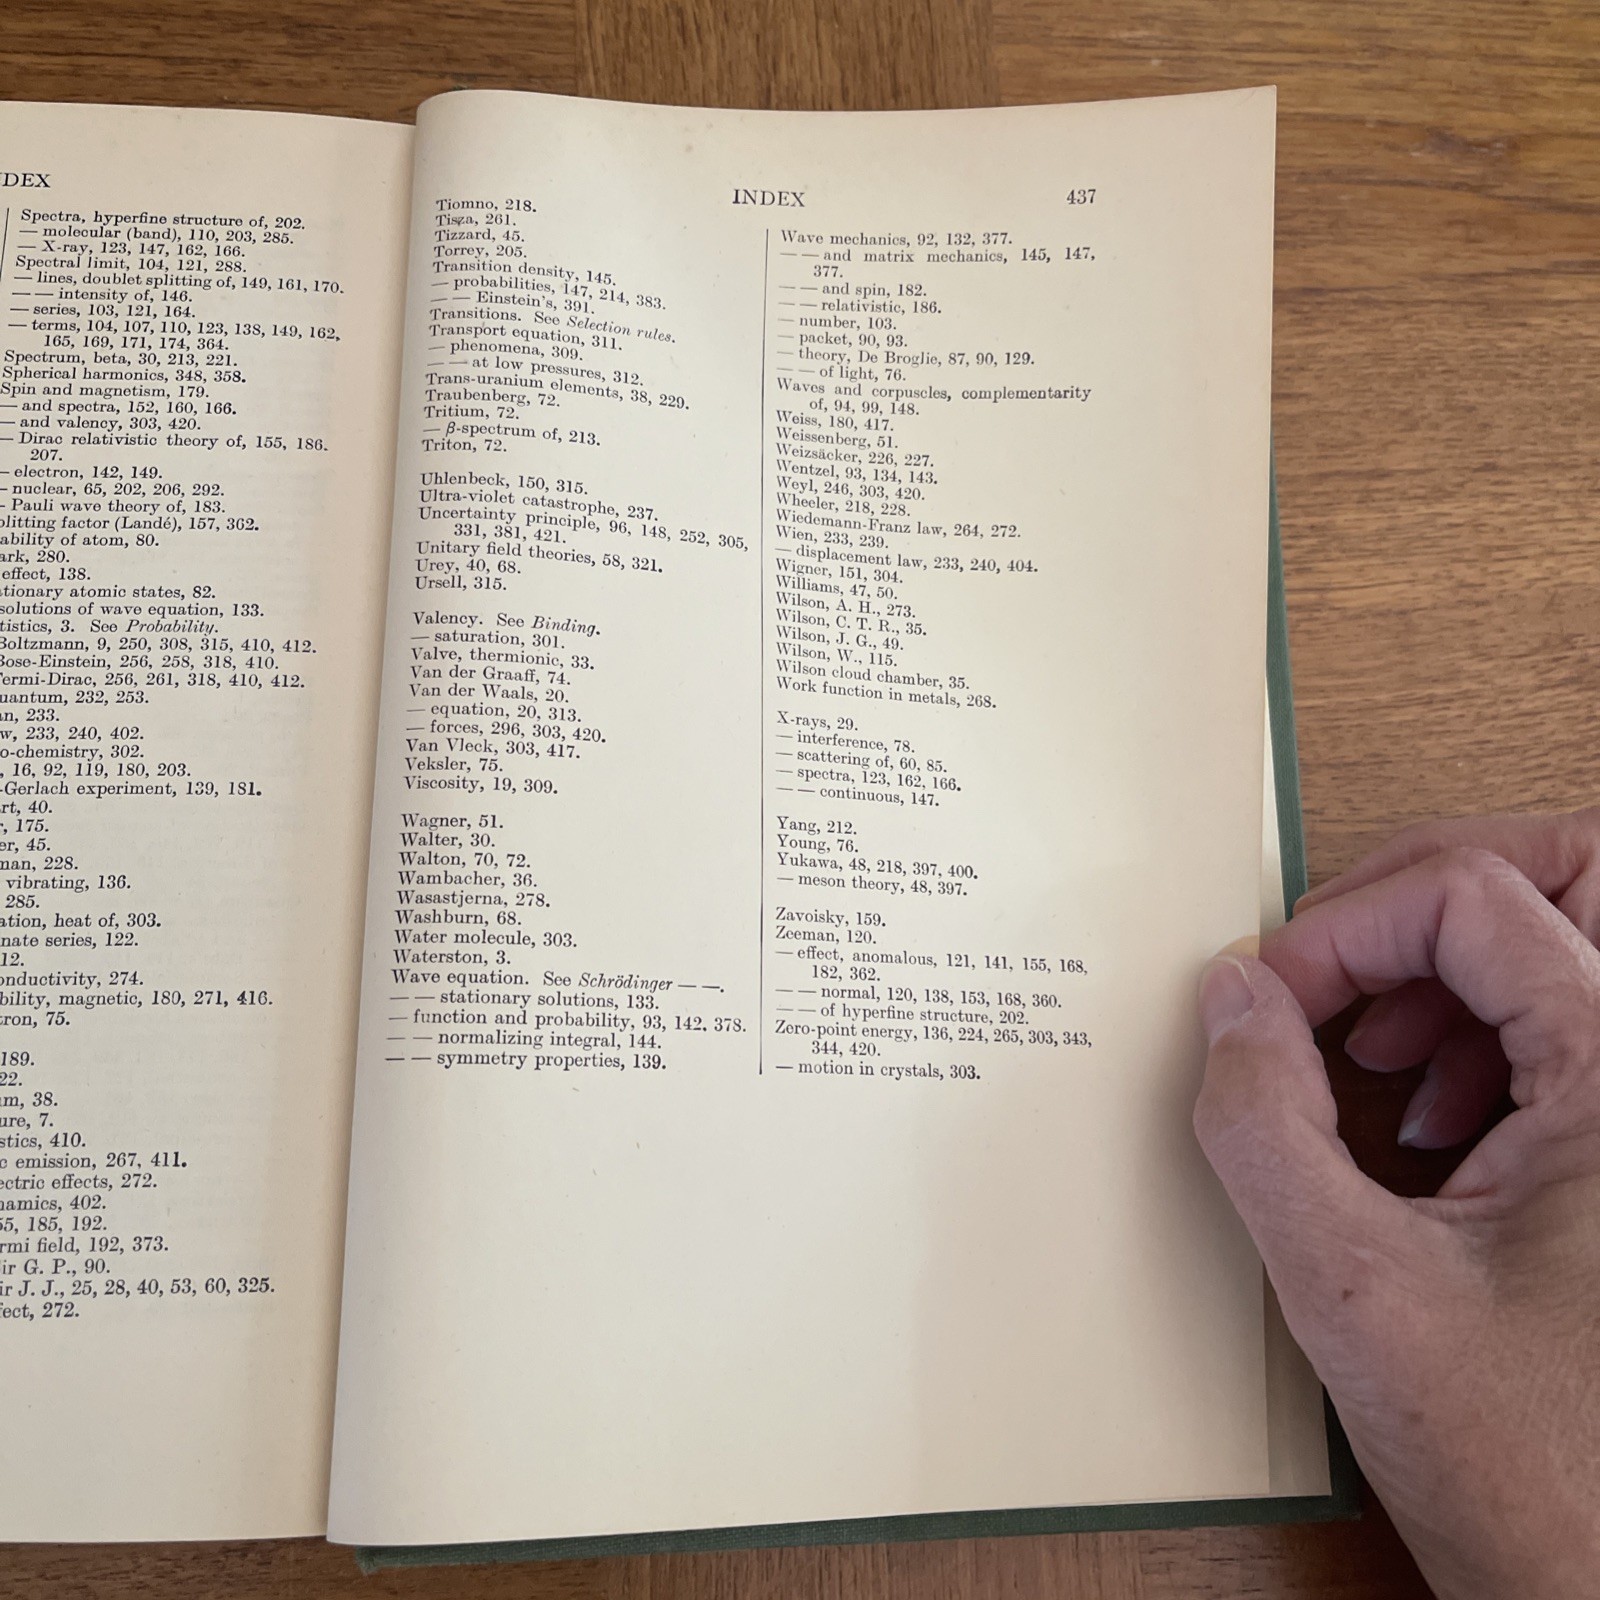 INDEX
Spectra, hyperfine structure of, 202.
— molecular (band), 110, 203, 285.
— X-ray, 123, 147, 162, 166.
Spectral limit, 104, 121, 288.
— lines, doublet splitting of, 149, 161, 170.
— — intensity of, 146.
— series, 103, 121, 164.
— terms, 104, 107, 110, 123, 138, 149, 162,
165, 169, 171, 174, 364.
Spectrum, beta, 30, 213, 221.
Spherical harmonics, 348, 358.
Spin and magnetism, 179.
— and spectra, 152, 160, 166.
— and valency, 303, 420.
— Dirac relativistic theory of, 155, 186.
207.
— electron, 142, 149.
— nuclear, 65, 202, 206, 292.
— Pauli wave theory of, 183.
factor (Landé), 157, 362.
of atom, 80.
280.
effect, 138.
atomic states, 82.
solutions of wave equation, 133.
3. See Probability.
Boltzmann, 9, 250, 308, 315, 410, 412.
Bose-Einstein, 256, 258, 318, 410.
Fermi-Dirac, 256, 261, 318, 410, 412.
quantum, 232, 253.
233.
233, 240, 402.
302.
, 16, 92, 119, 180, 203.
-Gerlach experiment, 139, 181.
40.
, 175.
45.
228.
vibrating, 136.
285.
heat of, 303.
series, 122.
12.
274.
magnetic, 180, 271, 416.
75.
189.
22.
38.
7.
410.
emission, 267, 411.
effects, 272.
402.
185, 192.
field, 192, 373.
G. P., 90.
J. J., 25, 28, 40, 53, 60, 325.
272.
INDEX 437
Tiomno, 218.
Tisza, 261.
Tizzard, 45.
Torrey, 205.
Transition density, 145.
— probabilities, 147, 214, 383.
— — Einstein's, 391.
Transitions. See Selection rules.
Transport equation, 311.
— phenomena, 309.
— — at low pressures, 312.
Trans-uranium elements, 38, 229.
Traubenberg, 72.
Tritium, 72.
— β-spectrum of, 213.
Triton, 72.
Uhlenbeck, 150, 315.
Ultra-violet catastrophe, 237.
Uncertainty principle, 96, 148, 252, 305,
331, 381, 421.
Unitary field theories, 58, 321.
Urey, 40, 68.
Ursell, 315.
Valency. See Binding.
— saturation, 301.
Valve, thermionic, 33.
Van der Graaff, 74.
Van der Waals, 20.
— equation, 20, 313.
— forces, 296, 303, 420.
Van Vleck, 303, 417.
Veksler, 75.
Viscosity, 19, 309.
Wagner, 51.
Walter, 30.
Walton, 70, 72.
Wambacher, 36.
Wasastjerna, 278.
Washburn, 68.
Water molecule, 303.
Waterston, 3.
Wave equation. See Schrödinger — —.
— — stationary solutions, 133.
— function and probability, 93, 142. 378.
— — normalizing integral, 144.
— — symmetry properties, 139.
Wave mechanics, 92, 132, 377.
— — and matrix mechanics, 145, 147,
377.
— — and spin, 182.
— — relativistic, 186.
— number, 103.
— packet, 90, 93.
— theory, De Broglie, 87, 90, 129.
— — of light, 76.
Waves and corpuscles, complementarity
of, 94, 99, 148.
Weiss, 180, 417.
Weissenberg, 51.
Weizsäcker, 226, 227.
Wentzel, 93, 134, 143.
Weyl, 246, 303, 420.
Wheeler, 218, 228.
Wiedemann-Franz law, 264, 272.
Wien, 233, 239.
— displacement law, 233, 240, 404.
Wigner, 151, 304.
Williams, 47, 50.
Wilson, A. H., 273.
Wilson, C. T. R., 35.
Wilson, J. G., 49.
Wilson, W., 115.
Wilson cloud chamber, 35.
Work function in metals, 268.
X-rays, 29.
— interference, 78.
— scattering of, 60, 85.
— spectra, 123, 162, 166.
— — continuous, 147.
Yang, 212.
Young, 76.
Yukawa, 48, 218, 397, 400.
— meson theory, 48, 397.
Zavoisky, 159.
Zeeman, 120.
— effect, anomalous, 121, 141, 155, 168,
182, 362.
— — normal, 120, 138, 153, 168, 360.
— — of hyperfine structure, 202.
Zero-point energy, 136, 224, 265, 303, 343,
344, 420.
— motion in crystals, 303.